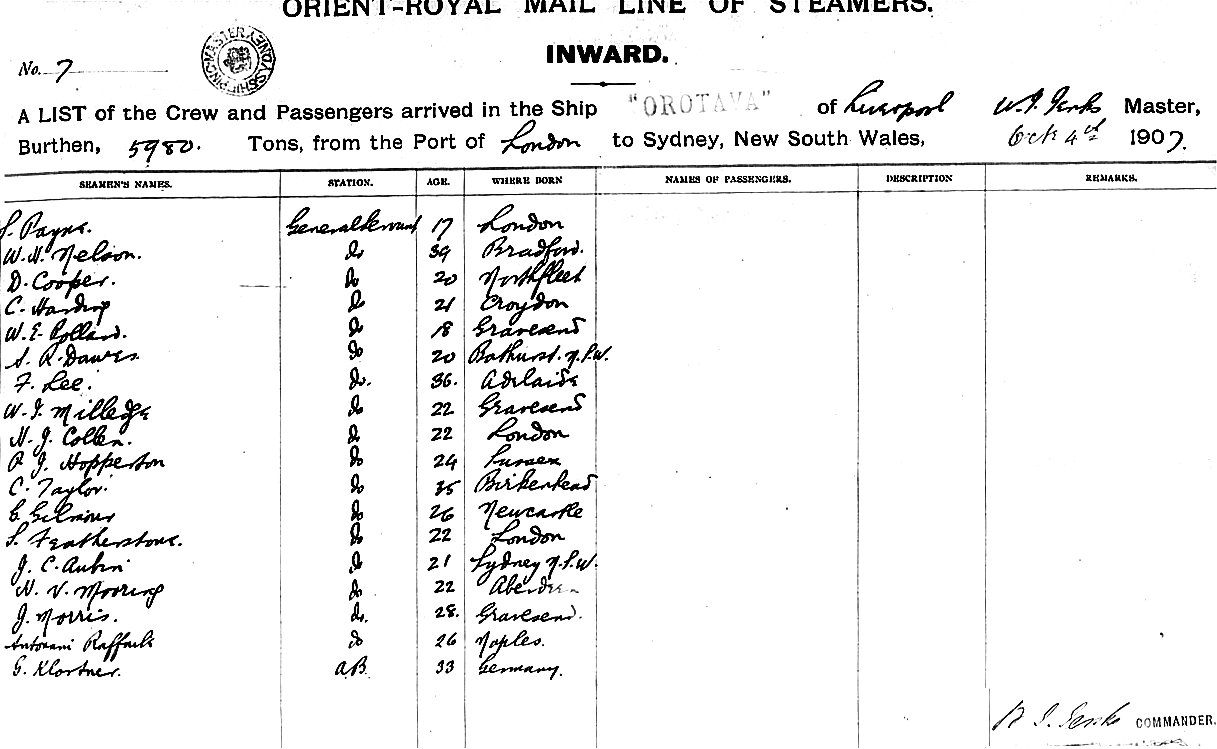 ORIENT-ROYAL MAIL LINE OF STEAMERS.
INWARD.
No. 7
A LIST of the Crew and Passengers arrived in the Ship "OROTAVA" of Liverpool W. J. Jenks Master,
Burthen, 5980. Tons, from the Port of London to Sydney, New South Wales, Oct 4th 1907.
SEAMEN'S NAMES. STATION. AGE. WHERE BORN NAMES OF PASSENGERS. DESCRIPTION REMARKS.
S. Payne. General Servant 17 London
W. H. Nelson. Do 39 Bradford.
D. Cooper. Do 20 Northfleet
C. Do 21 Croydon
W. E. Polland. Do 18 Gravesend
S. R. Dawes Do 20 Bathurst. N.S.W.
F. Lee. Do. 36. Adelaide
W. J. Milledge Do 22 Gravesend
H. J. Collen. Do 22 London
R. J. Hopperton Do 24 Sussex
C. Taylor. Do 35 Birkenhead
E. Gilmour Do 26 Newcastle
S. Featherstone. Do 22 London
J. C. Aubin Do 21 Sydney N.S.W.
H. V. Mooring Do 22 Aberdeen
J. Morris. Do. 28. Gravesend.
Raffaele Do 26 Naples.
G. Klortner. A.B. 33 Germany.
Jenks COMMANDER.